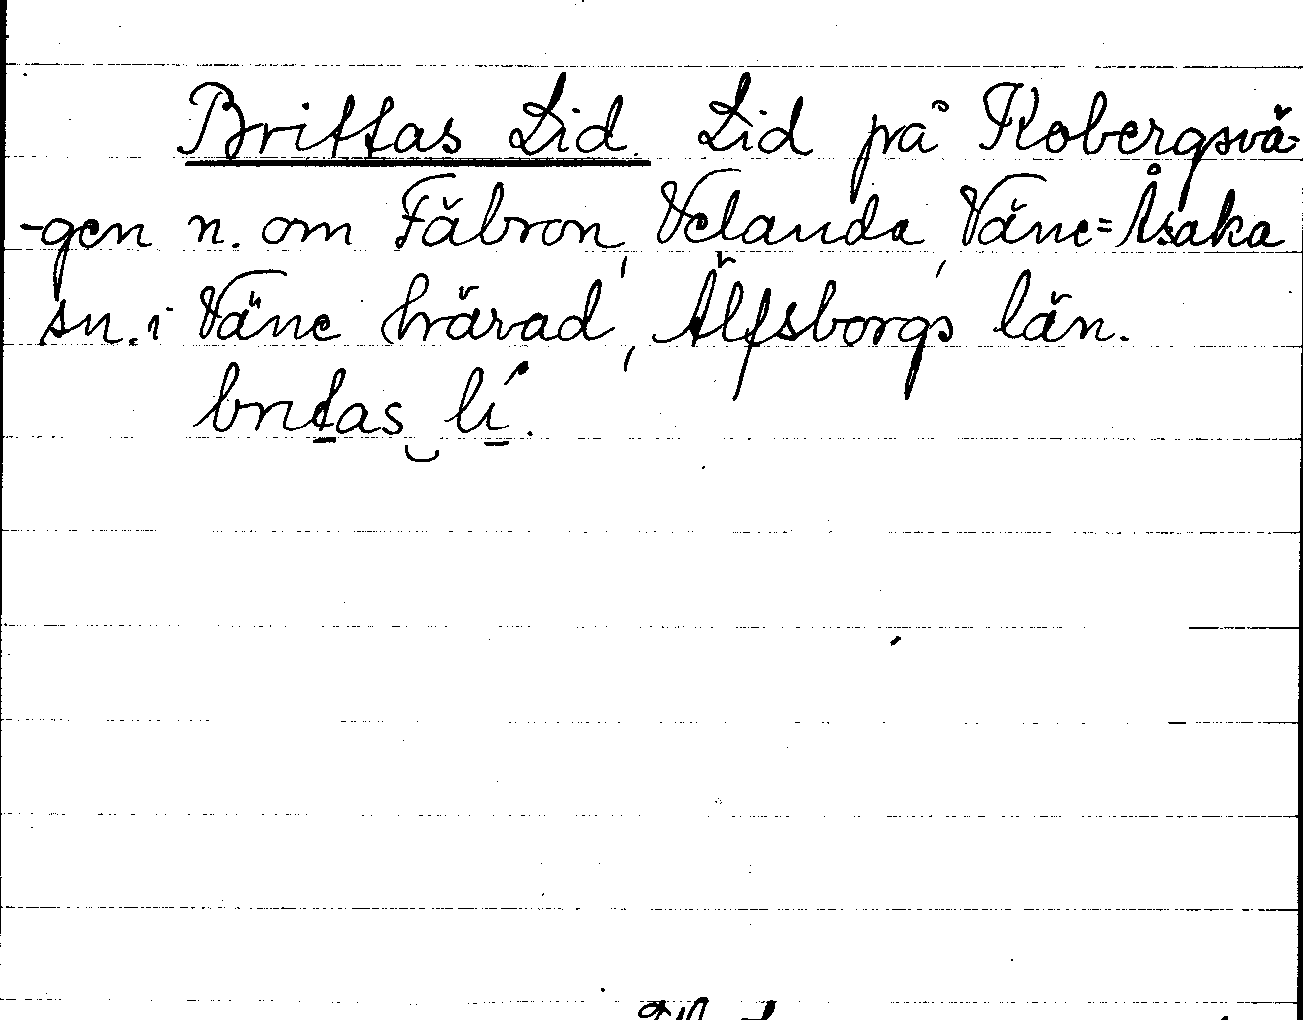 Brittas Lid. Lid på Kobergsvä-
-gen n. om Fäbron, Velanda, Väne=Åsaka
sn. i Väne härad, Älfsborgs län.
britas li.